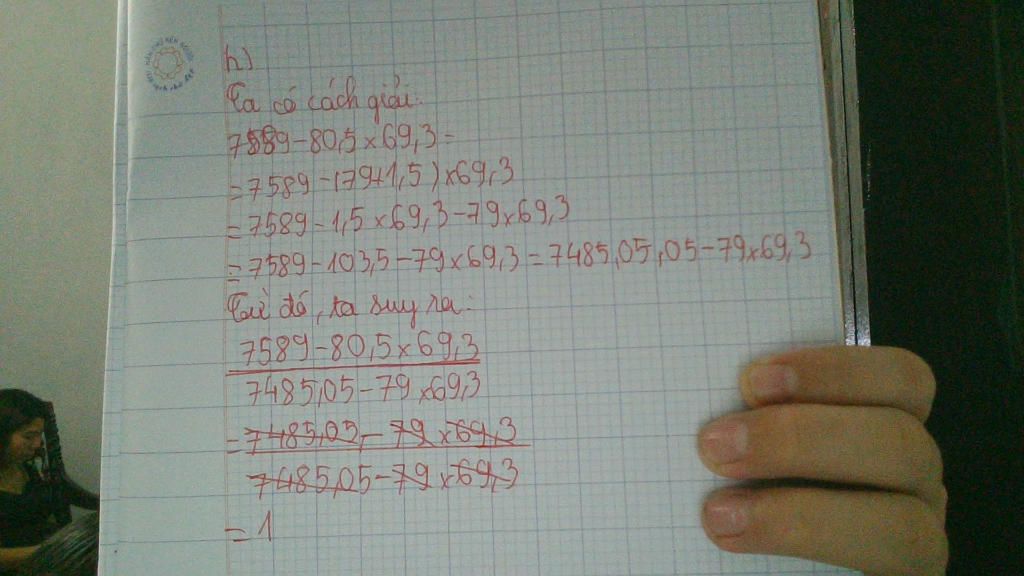 h)
Ta có cách giải:
7589-80,5×69,3=
=7589-(79+1,5)×69,3
=7589-1,5×69,3-79×69,3
=7589-103,5-79×69,3=7485,05,05-79×69,3
Từ đó, ta suy ra:
7589-80,5×69,3
7485,05-79×69,3
=7485,05,-79×69,3
7485,05-79×69,3
=1